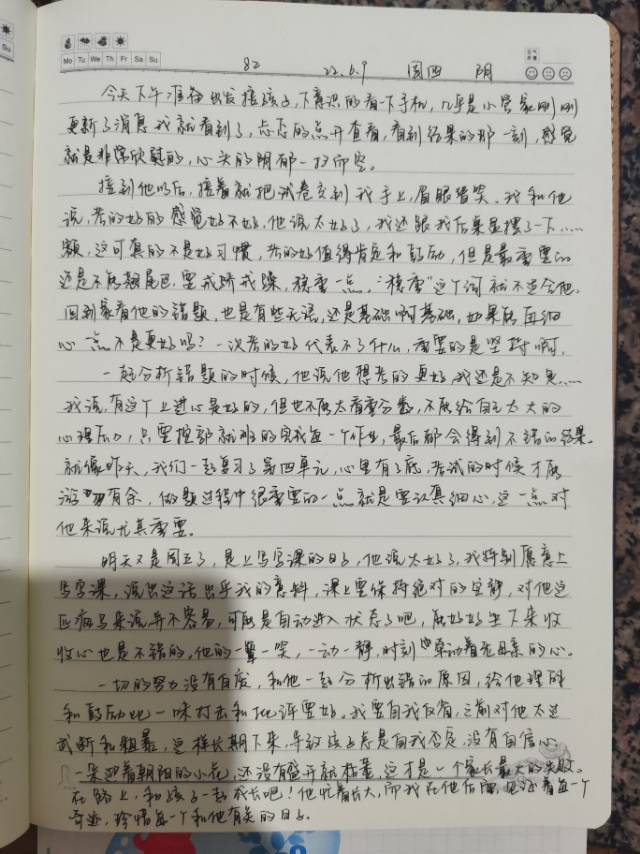 Su
Mo Tu We Th Fr Sa Su
82 22.6.9 周四 阴
今天下午准备出发接孩子，下意识的看一下手机，几乎是小管家刚刚
更新了消息我就看到了，忐忑的点开查看，看到结果的那一刻，感觉
就是非常欣慰的，心头的阴郁一扫而空。
接到他以后，接着就把试卷交到我手上，眉眼皆笑。我和他
说，考的好的感觉好不好，他说太好了，我还跟我后桌显摆了一下……
额，这可真的不是好习惯，考的好值得肯定和鼓励，但是最重要的
还是不能翘尾巴，要戒骄戒躁，稳重一点，"稳重"这个词就不适合他。
回到家看他的错题，也是有些无语，还是基础啊基础，如果能再细
心一点不是更好吗？一次考的好代表不了什么，重要的是坚持啊。
一起分析错题的时候，他说他想考的更好，我还是不知足……
我说，有这个上进心是好的，但也不能太看重分数，不能给自己太大的
心理压力，只要按部就班的完成每一个作业，最后都会得到不错的结果。
就像昨天，我们一起复习了第四单元，心里有了底，考试的时候才能
游刃有余，做题过程中很重要的一点就是要认真细心，这一点对
他来说尤其重要。
明天又是周五了，是上写字课的日子，他说太好了，我特别愿意上
写字课，说出这话出乎我的意料，课上要保持绝对的安静，对他这
匹疯马来说并不容易，可能是自动进入状态了吧，能好好坐下来收
收心也是不错的，他的一颦一笑，一动一静，时刻牵动着老母亲的心。
一切的努力没有白废，和他一起分析出错的原因，给他理解
和鼓励比一味打击和批评要好。我要自我反省，之前对他太过
武断和粗暴，这样长期下来，导致孩子总是自我否定，没有自信心
一朵迎着朝阳的小花，还没有盛开就枯萎，这才是一个家长最大的失败。
在路上，和孩子一起成长吧！他忙着长大，而我在他后面，见证着每一个
奇迹，珍惜每一个和他有关的日子。